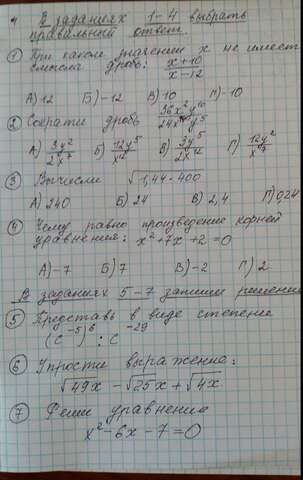 В заданиях 1-4 выбрать
правильный ответ.
① При каком значении x не имеет
смысла дробь: (x+10)/(x-12)
А) 12 Б) -12 В) 10 Г) -10
② Сократи дробь
А) 3y²/2x⁷ Б) 12y⁵/x¹² В) 3y⁵/2x¹² Г) 12y²/x⁷
③ Вычисли √1,44·400
А) 240 Б) 24 В) 2,4 Г) 0,24
④ Чему равно произведение корней
уравнения: x²+7x+2=0
А) -7 Б) 7 В) -2 Г) 2
В заданиях 5-7 запиши решение
⑤ Представь в виде степени
(c⁻⁵)⁶ : c⁻²⁹
⑥ Упрости выражение:
√49x - √25x + √4x
⑦ Реши уравнение
x²-6x-7=0